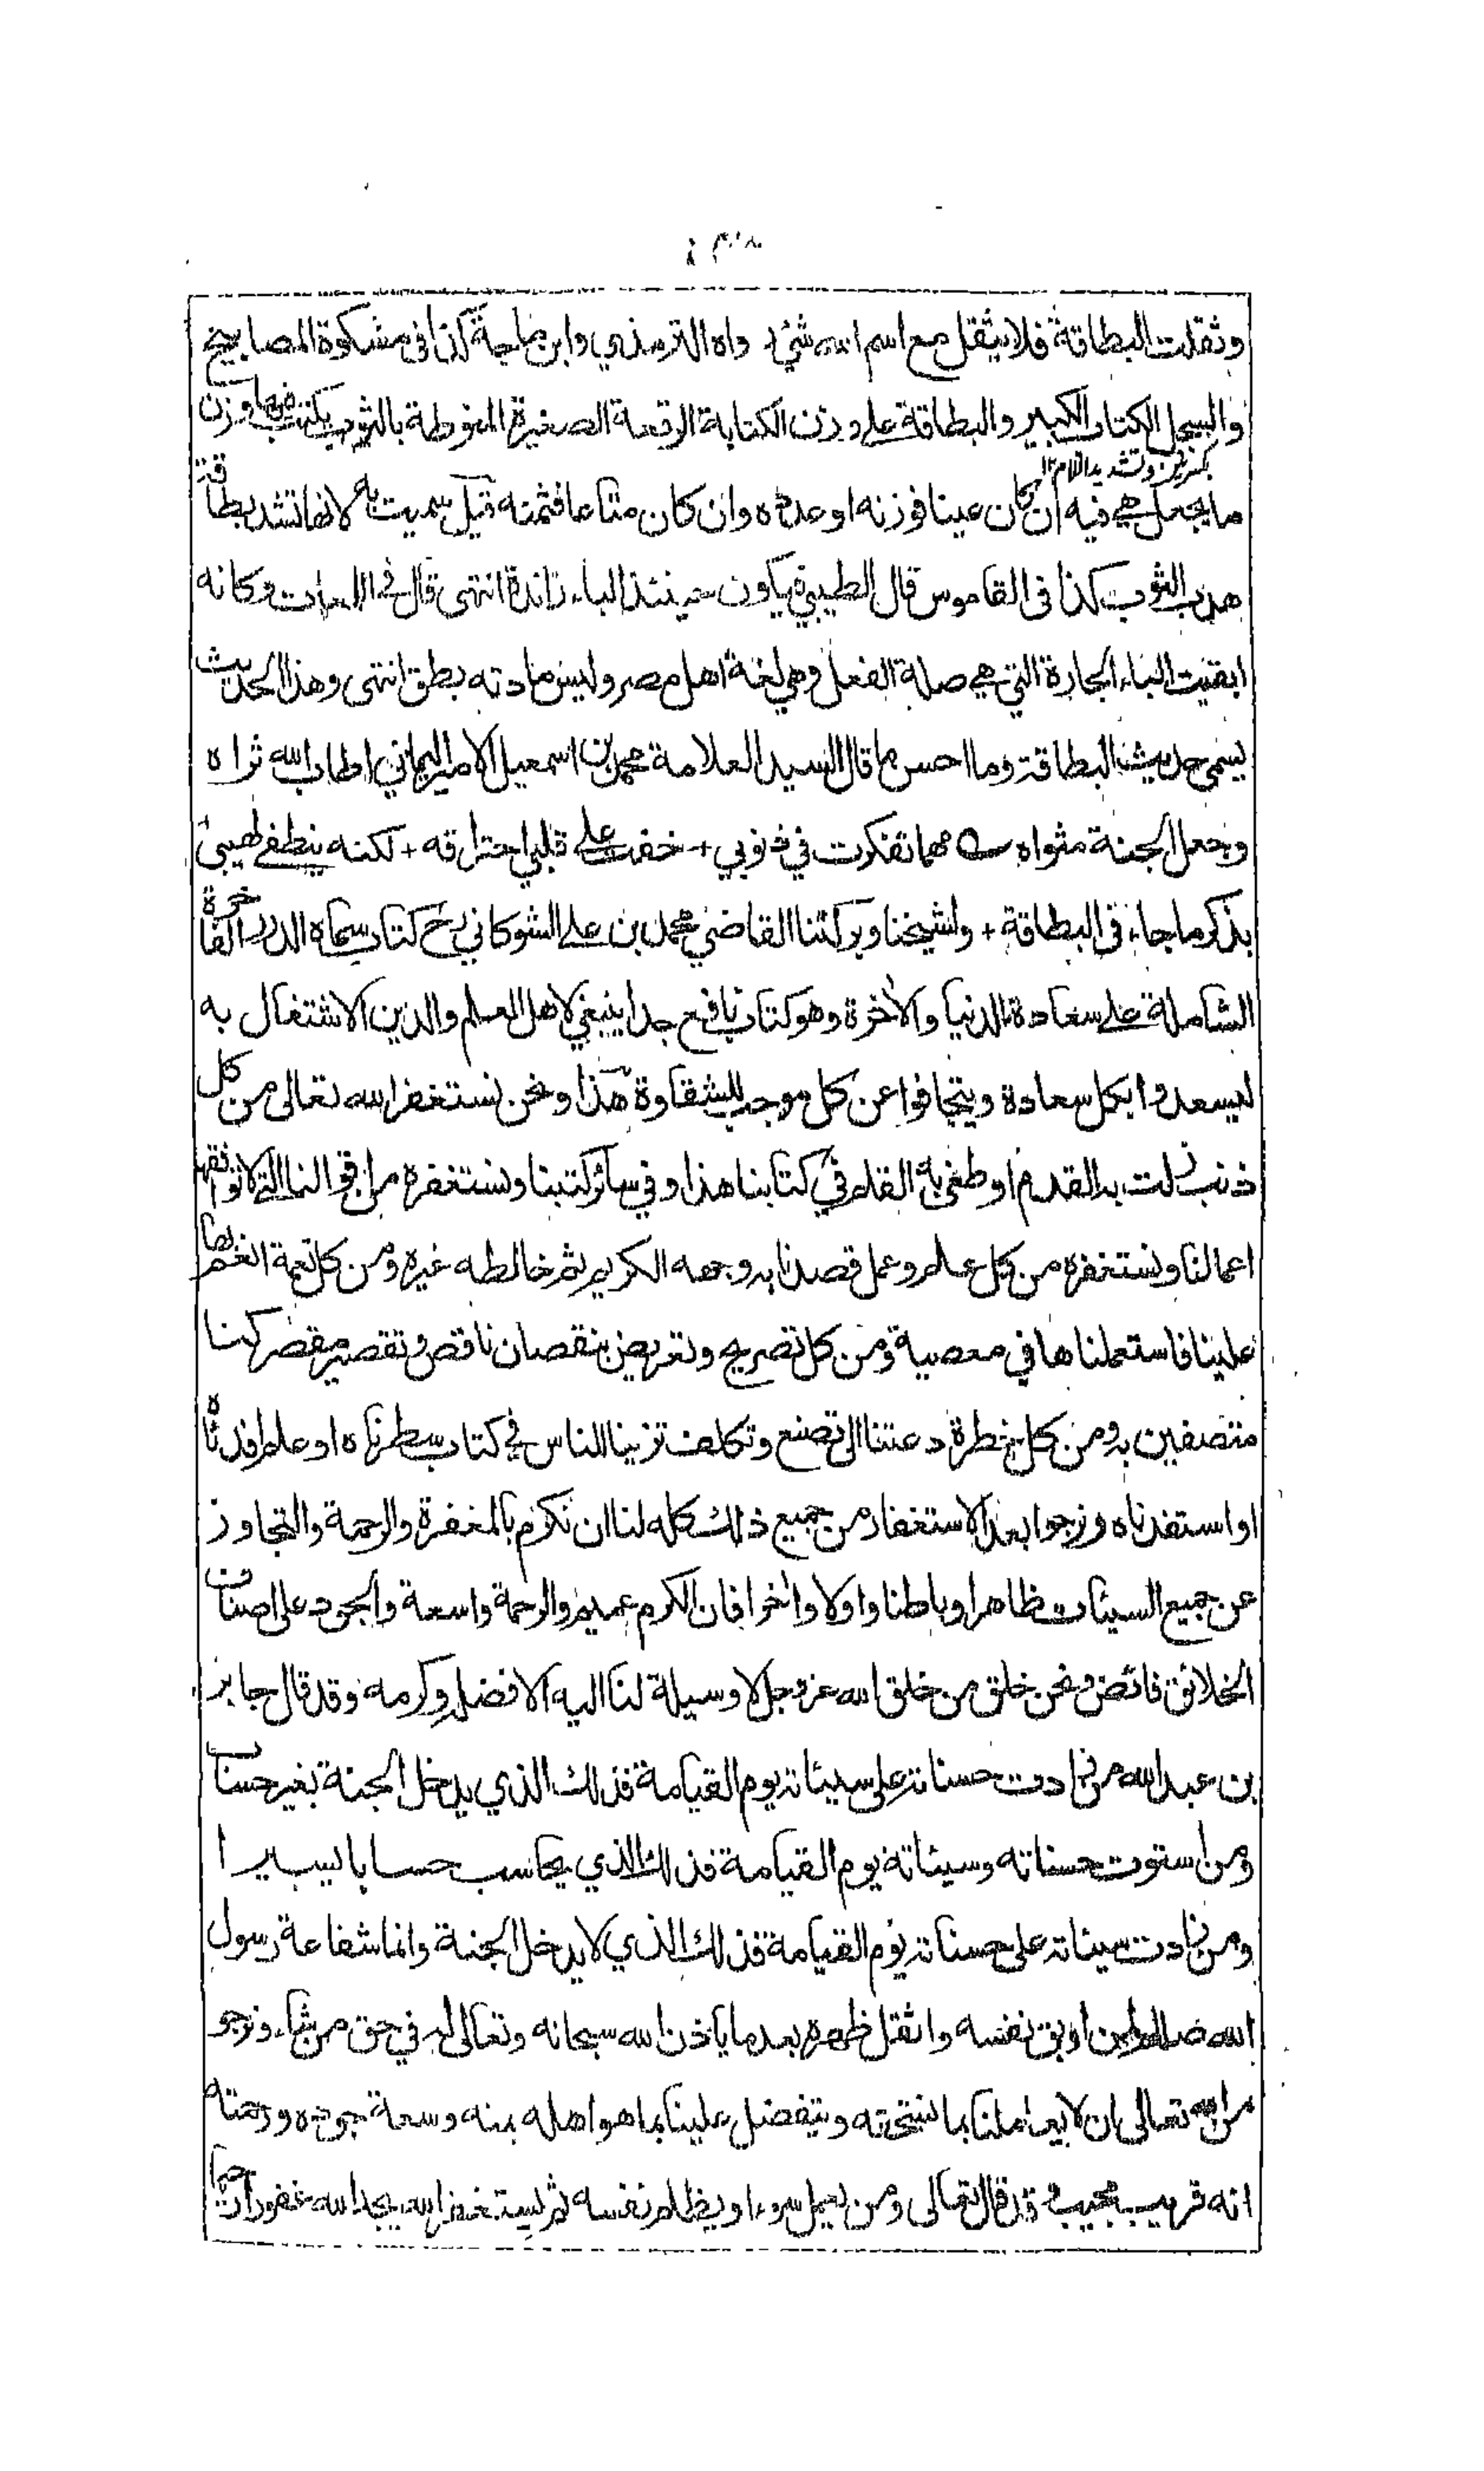 وثقلت البطاقة فلا يثقل مع اسم الله شئ رواه الترمذي وابن ماجة كذا في مشكوة المصابيح
والسجل الكتاب الكبير والبطاقة على وزن الكتابة الرقعة الصغيرة المنوطة بالثوب يكتب فيها وزن
بكسرتين وتشديد اللام ١٢
ما يجعل هي فيه ان كان عينا فوزنه او عدده وان كان متاعا فثمنه قيل سميت به لانها تشد بطاقة
هدب الثوب كذا في القاموس قال الطيبي فيكون حينئذ الباء زائدة انتهى قال في اللمعات وكانه
ابقيت الباء الجارة التي هي صلة الفعل وهي لغة اهل مصر وليس مادته بطق انتهى وهذا الحديث
يسمى حديث البطاقة وما احسن ما قال السيد العلامة محمد بن اسمعيل الامير اليماني اطاب الله ثراه
وجعل الجنة مثواه مهما تفكرت في ذنوبي + خفت على قلبي احتراقه + لكنه ينطفي لهيبي
بذكر ما جاء في البطاقة + ولشيخنا وبركتنا القاضي محمد بن علي الشوكاني رح كتاب سماه الدرر الفاخرة
الشاملة على سعادة الدنيا والآخرة وهو كتاب نافع جدا ينبغي لاهل العلم والدين الاشتغال به
ليسعدوا بكل سعادة ويتجافوا عن كل موجب للشقاوة هذا ونحن نستغفر الله تعالى من كل
ذنب زلت به القدم او طغى به القلم في كتابنا هذا وفي سائر كتبنا ونستغفره من اقوالنا التي لا توافقها
اعمالنا ونستغفره من كل علم وعمل قصدنا به وجهه الكريم ثم خالطه غيره ومن كل نعمة انعم بها
علينا فاستعملناها في معصية ومن كل تصريح وتعريض بنقصان ناقص وتقصير مقصر كنا
متصفين به ومن كل خطرة دعتنا الى تصنع وتكلف تزينا للناس في كتاب سطرناه او علم افدناه
او استفدناه ونرجوا بعد الاستغفار من جميع ذلك كله لنا ان نكرم بالمغفرة والرحمة والتجاوز
عن جميع السيئات ظاهرا وباطنا واولا وآخرا فان الكرم عميم والرحمة واسعة والجود على اصناف
الخلائق فائض ونحن خلق من خلق الله عز وجل لا وسيلة لنا اليه الا فضله وكرمه وقد قال جابر
بن عبد الله من زادت حسناته على سيئاته يوم القيامة فذلك الذي يدخل الجنة بغير حساب
ومن استوت حسناته وسيئاته يوم القيامة فذلك الذي يحاسب حسابا يسيرا
ومن زادت سيئاته على حسناته يوم القيامة فذلك الذي لا يدخل الجنة وانما شفاعة رسول
الله صللم لمن اوبق نفسه واثقل ظهره بعد ما ياذن الله سبحانه وتعالى له في حق من شاء ونرجو
من الله تعالى ان لا يعاملنا بما نستحقه ويتفضل علينا بما هو اهله بمنه وسعة جوده ورحمته
انه قريب مجيب وقد قال تعالى ومن يعمل سوءا او يظلم نفسه ثم يستغفر الله يجد الله غفورا رحيما